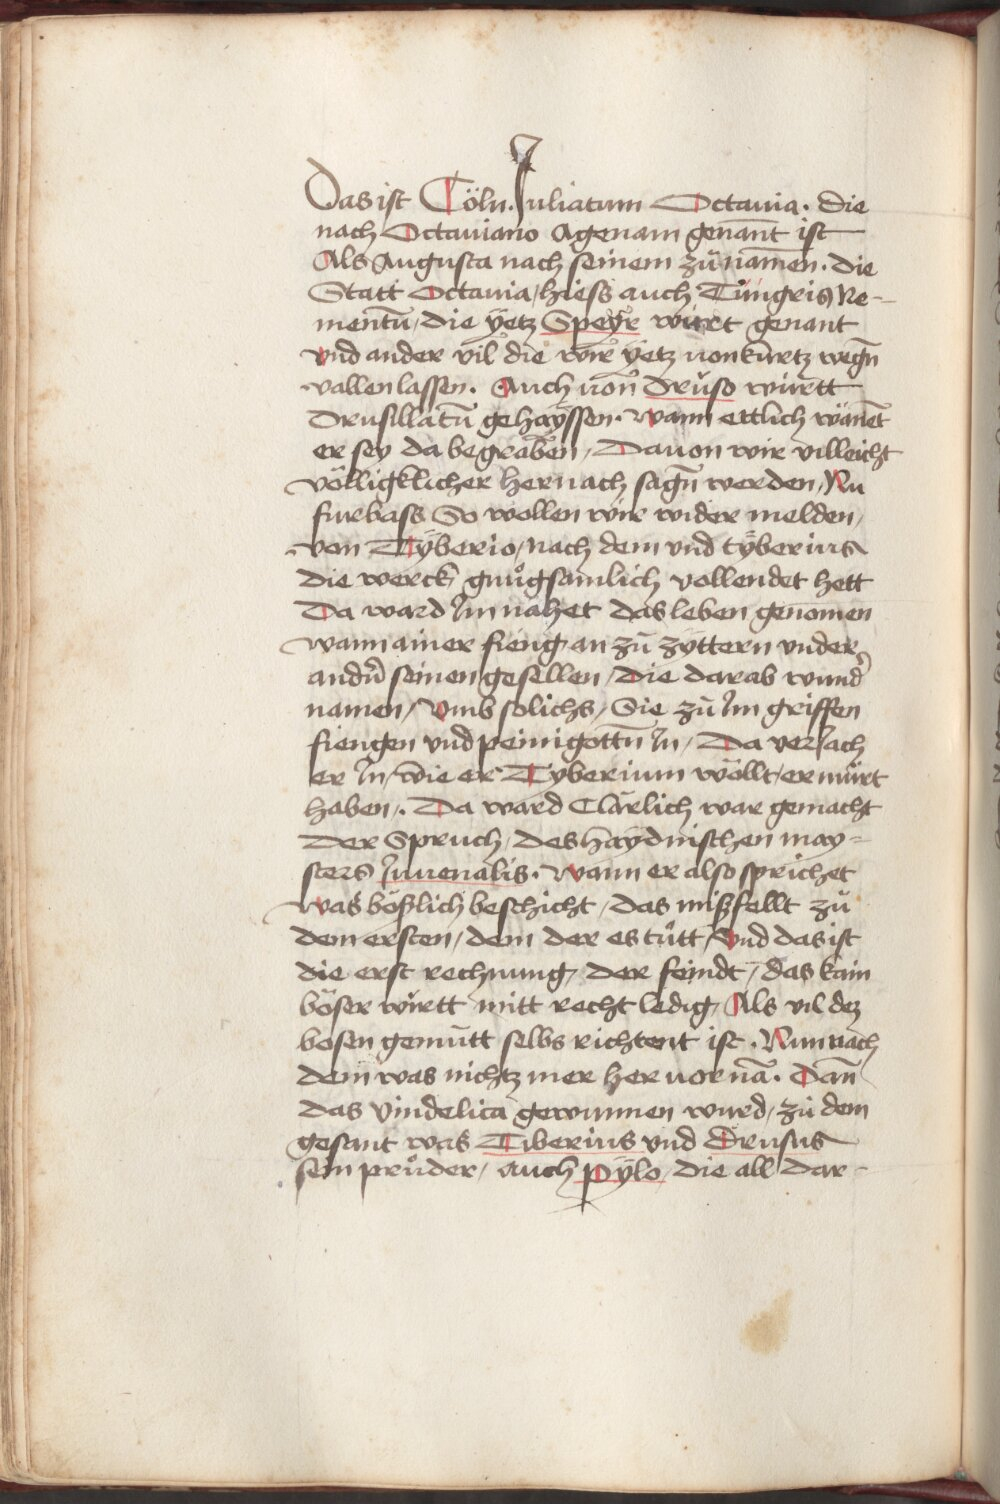 Das ist Cöln. Juliacum Octauia. die
nach Octauiano Agenam genant ist
Als Augusta nach seinem zu namen. die
Statt Octauia / hiess auch Tüngris Ne-
mentū / die yetz Speyr würt genant
vnd ander vil die wir yetz von kurtz wegn̄
vallen lassen. Auch von druso württ
Drusillatū gehayssen. wann ettlich wänēt
er sey da begraben / Dauon wir villeicht
völligklicher hernach sagn̄ werden / Nu
furbass So wollen wir wider melden /
von Tyberio / nach dem vnd tyberius
die werck gnugsamlich vollendet hett
Da ward Im nahet das leben genomen
wann ainer fieng an zu zyttern vnder
andn̄ seinen gesellen / die darab wund̄
namen / vmb solichs / Sie zu Im griffen
fiengen vnd peinigottn̄ In / Da veriach
er In / wie er Tyberium wöllt ermürt
haben /. Da ward Clärlich war gemacht
Der Spruch / des haydnischen may-
sters Juuenalis. wann er also sprichet
was bößlich beschicht / das mißfellt zu
dem ersten / dem der es tutt / vnd das ist
die erst rechnung / der feindt / das kain
böser württ mitt recht ledig / Als vil dez
bösen gemütt selbs richtent ist. Nun nach
dem was nichtz mer her vor nā. dan̄
das vindelica gewunnen wurd / zu dem
gesant was Tiberius vnd Drusus
sein pruder / auch pylo / die all dar-